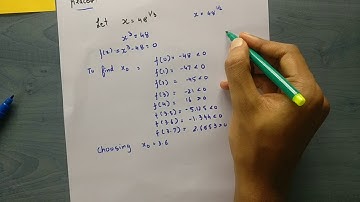 Let x = 48^1/3
x = 48^1/2
x³ = 48
f(x) = x³-48 = 0
To find x₀ = f(0) = -48 <0
f(1) = -47 <0
f(2) = -45 <0
f(3) = -21 <0
f(4) = 16 >0
f(3.5) = -5.125 <0
f(3.6) = -1.344 <0
f(3.7) = 2.6553 >0
choosing x₀ = 3.6